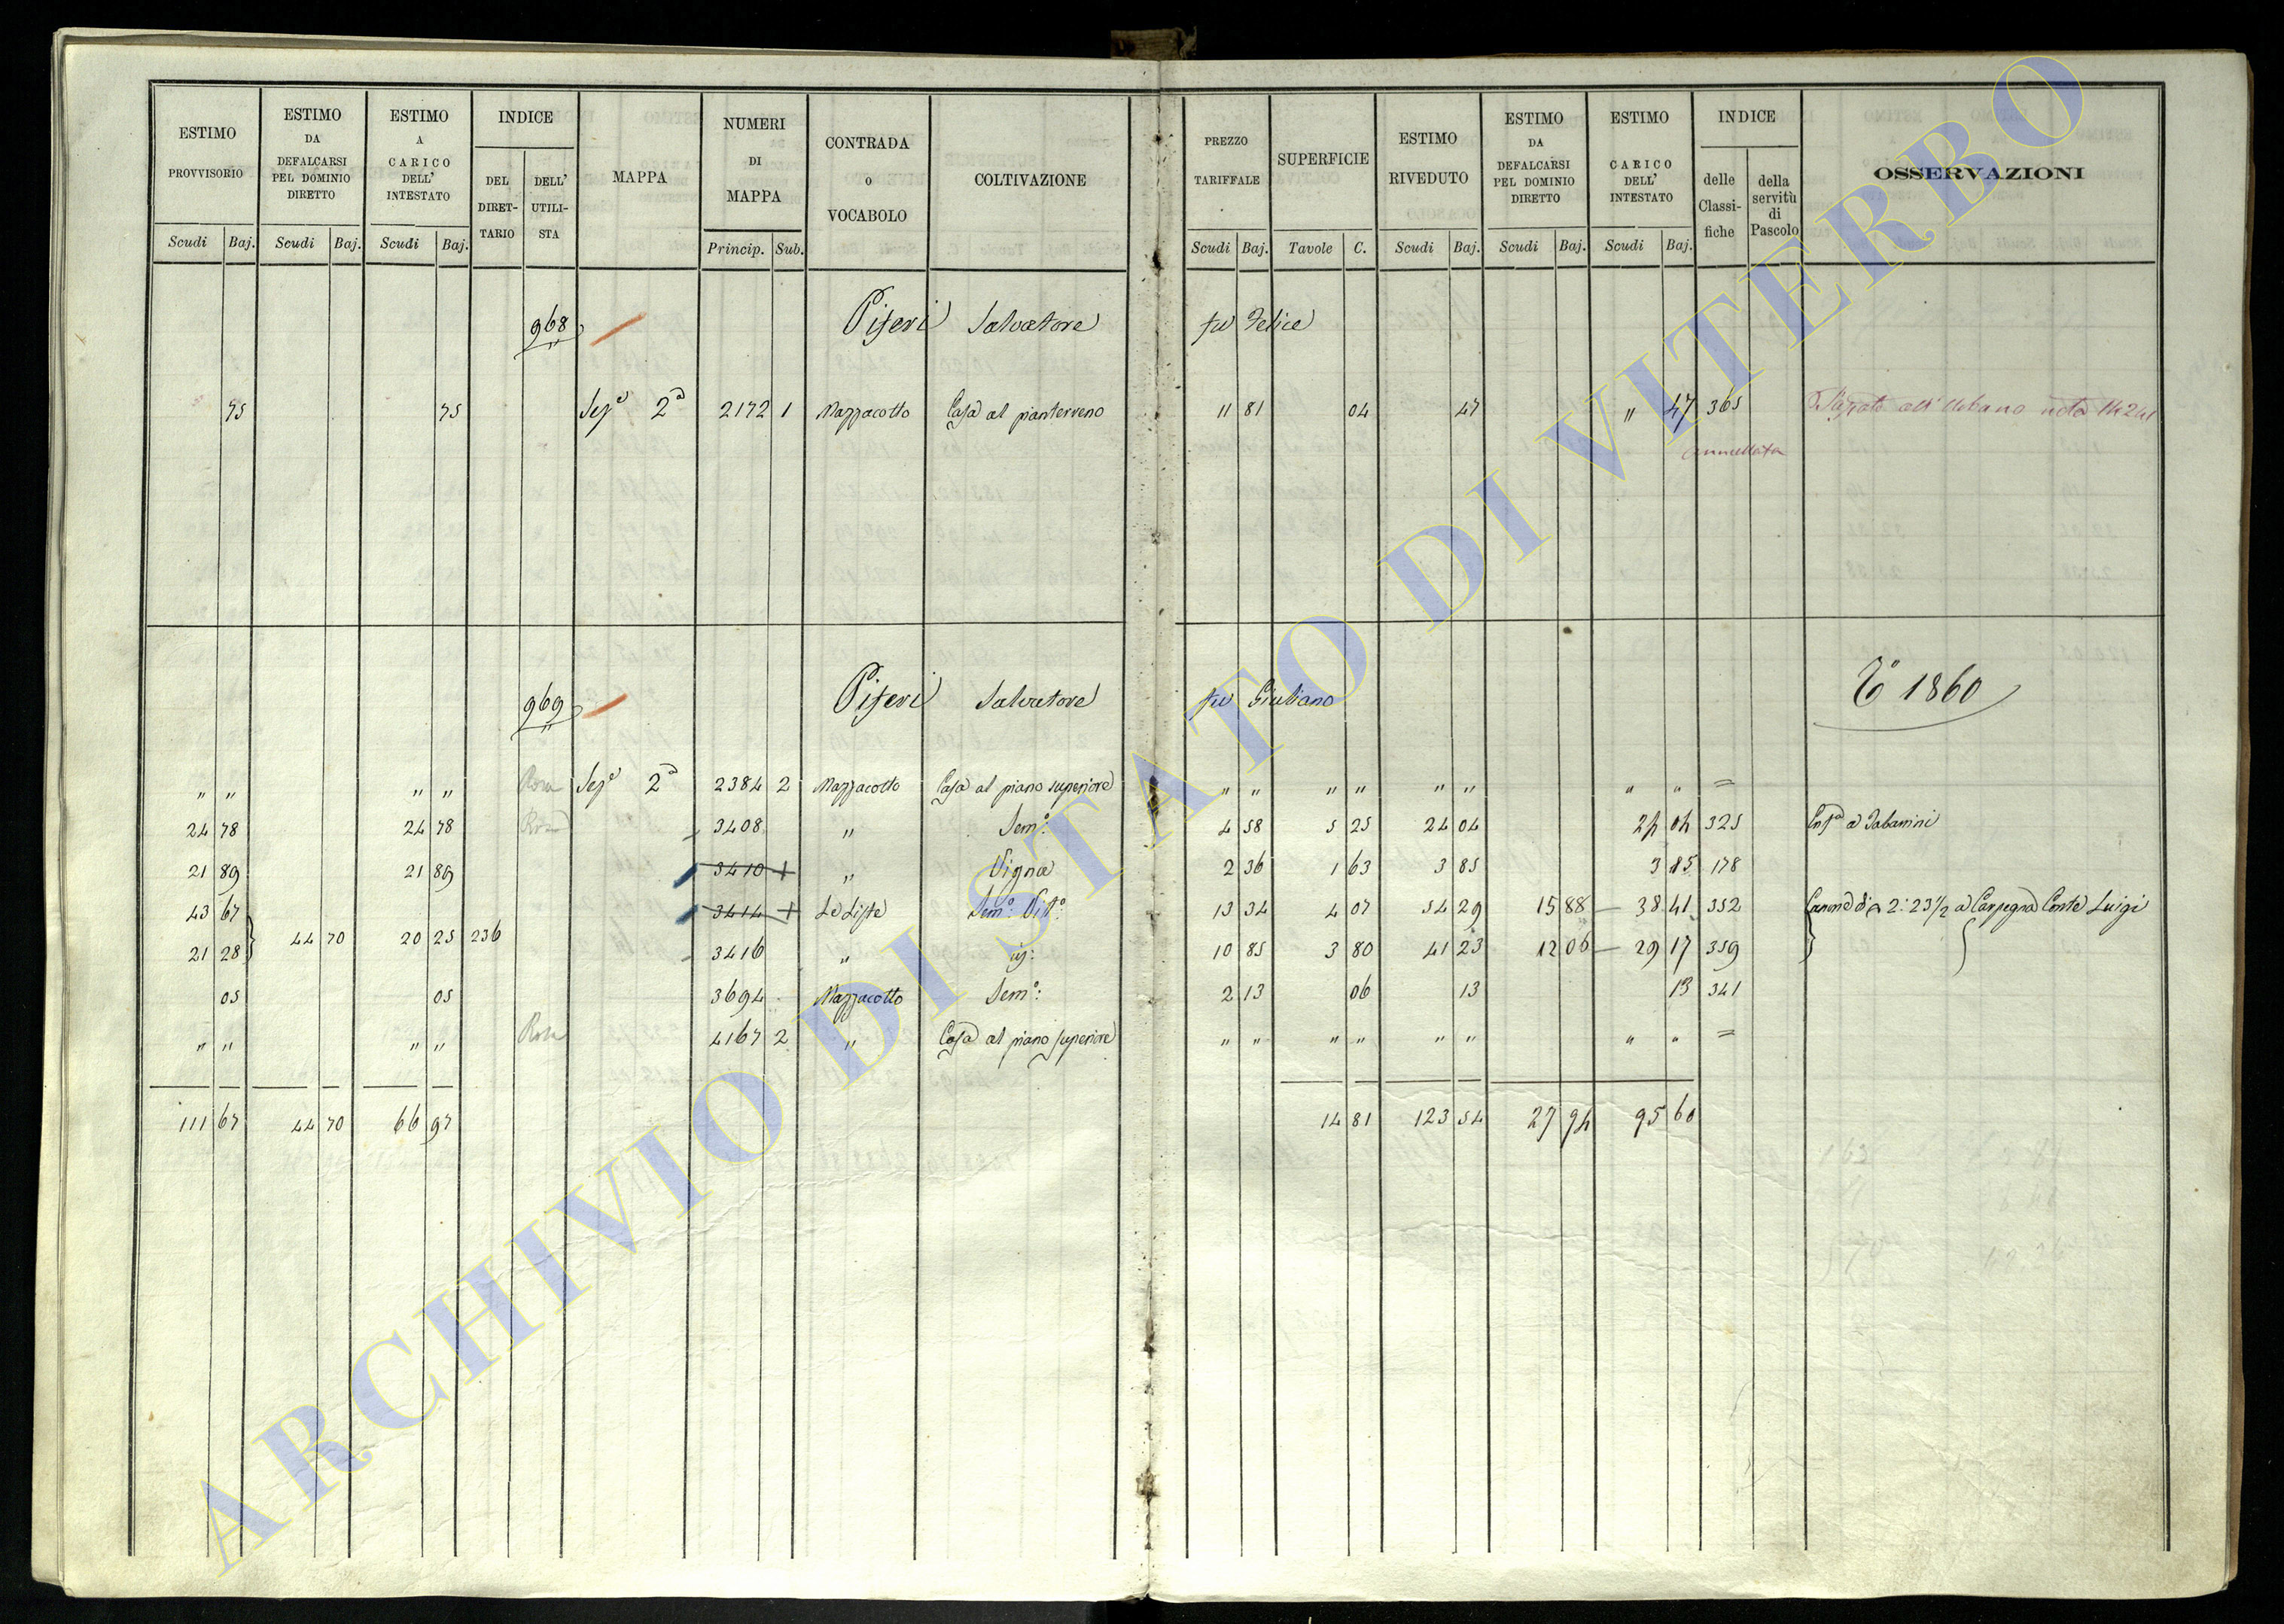 ESTIMO PROVVISORIO Scudi Baj.
ESTIMO DA DEFALCARSI PEL DOMINIO DIRETTO Scudi Baj.
ESTIMO A CARICO DELL' INTESTATO Scudi Baj.
INDICE DEL DIRETTARIO DELL' UTILISTA
MAPPA
NUMERI DI MAPPA Princip. Sub.
CONTRADA O VOCABOLO
COLTIVAZIONE
PREZZO TARIFFALE Scudi Baj.
SUPERFICIE Tavole C.
ESTIMO RIVEDUTO Scudi Baj.
ESTIMO DA DEFALCARSI PEL DOMINIO DIRETTO Scudi Baj.
ESTIMO CARICO DELL' INTESTATO Scudi Baj.
INDICE delle Classifiche della servitù di Pascolo
OSSERVAZIONI
968 Piferi Salvatore fu Felice
75 75 Sez.e 2a 2172 1 Mazzacotto Casa al pianterreno 11 81 04 47 " 47 365 all' Urbano
annullata
969 Piferi Salvatore fu Giuliano 1860
" " " " Rora Sez.e 2a 2384 2 Mazzacotto Casa al piano superiore " " " " " " " " =
24 78 24 78 3408 " Sem.o 4 58 5 25 24 04 24 04 325 a
21 89 21 89 3410 + " Vigna 2 36 1 63 3 85 3 85 178
43 67 3414 + Le Liste Sem.o Vit.o 13 34 4 07 54 29 15 88 38 41 352 Canone di 2: 23 1/2 a Carpegna Conte Luigi
21 28 44 70 20 25 236 3416 " id: 10 85 3 80 41 23 12 06 29 17 359
05 05 3694 Mazzacotto Sem.o: 2 13 06 13 13 341
" " " " 4167 2 " Casa al piano superiore " " " " " " " " =
111 67 44 70 66 97 14 81 123 54 27 94 95 60
ARCHIVIO DI STATO DI VITERBO